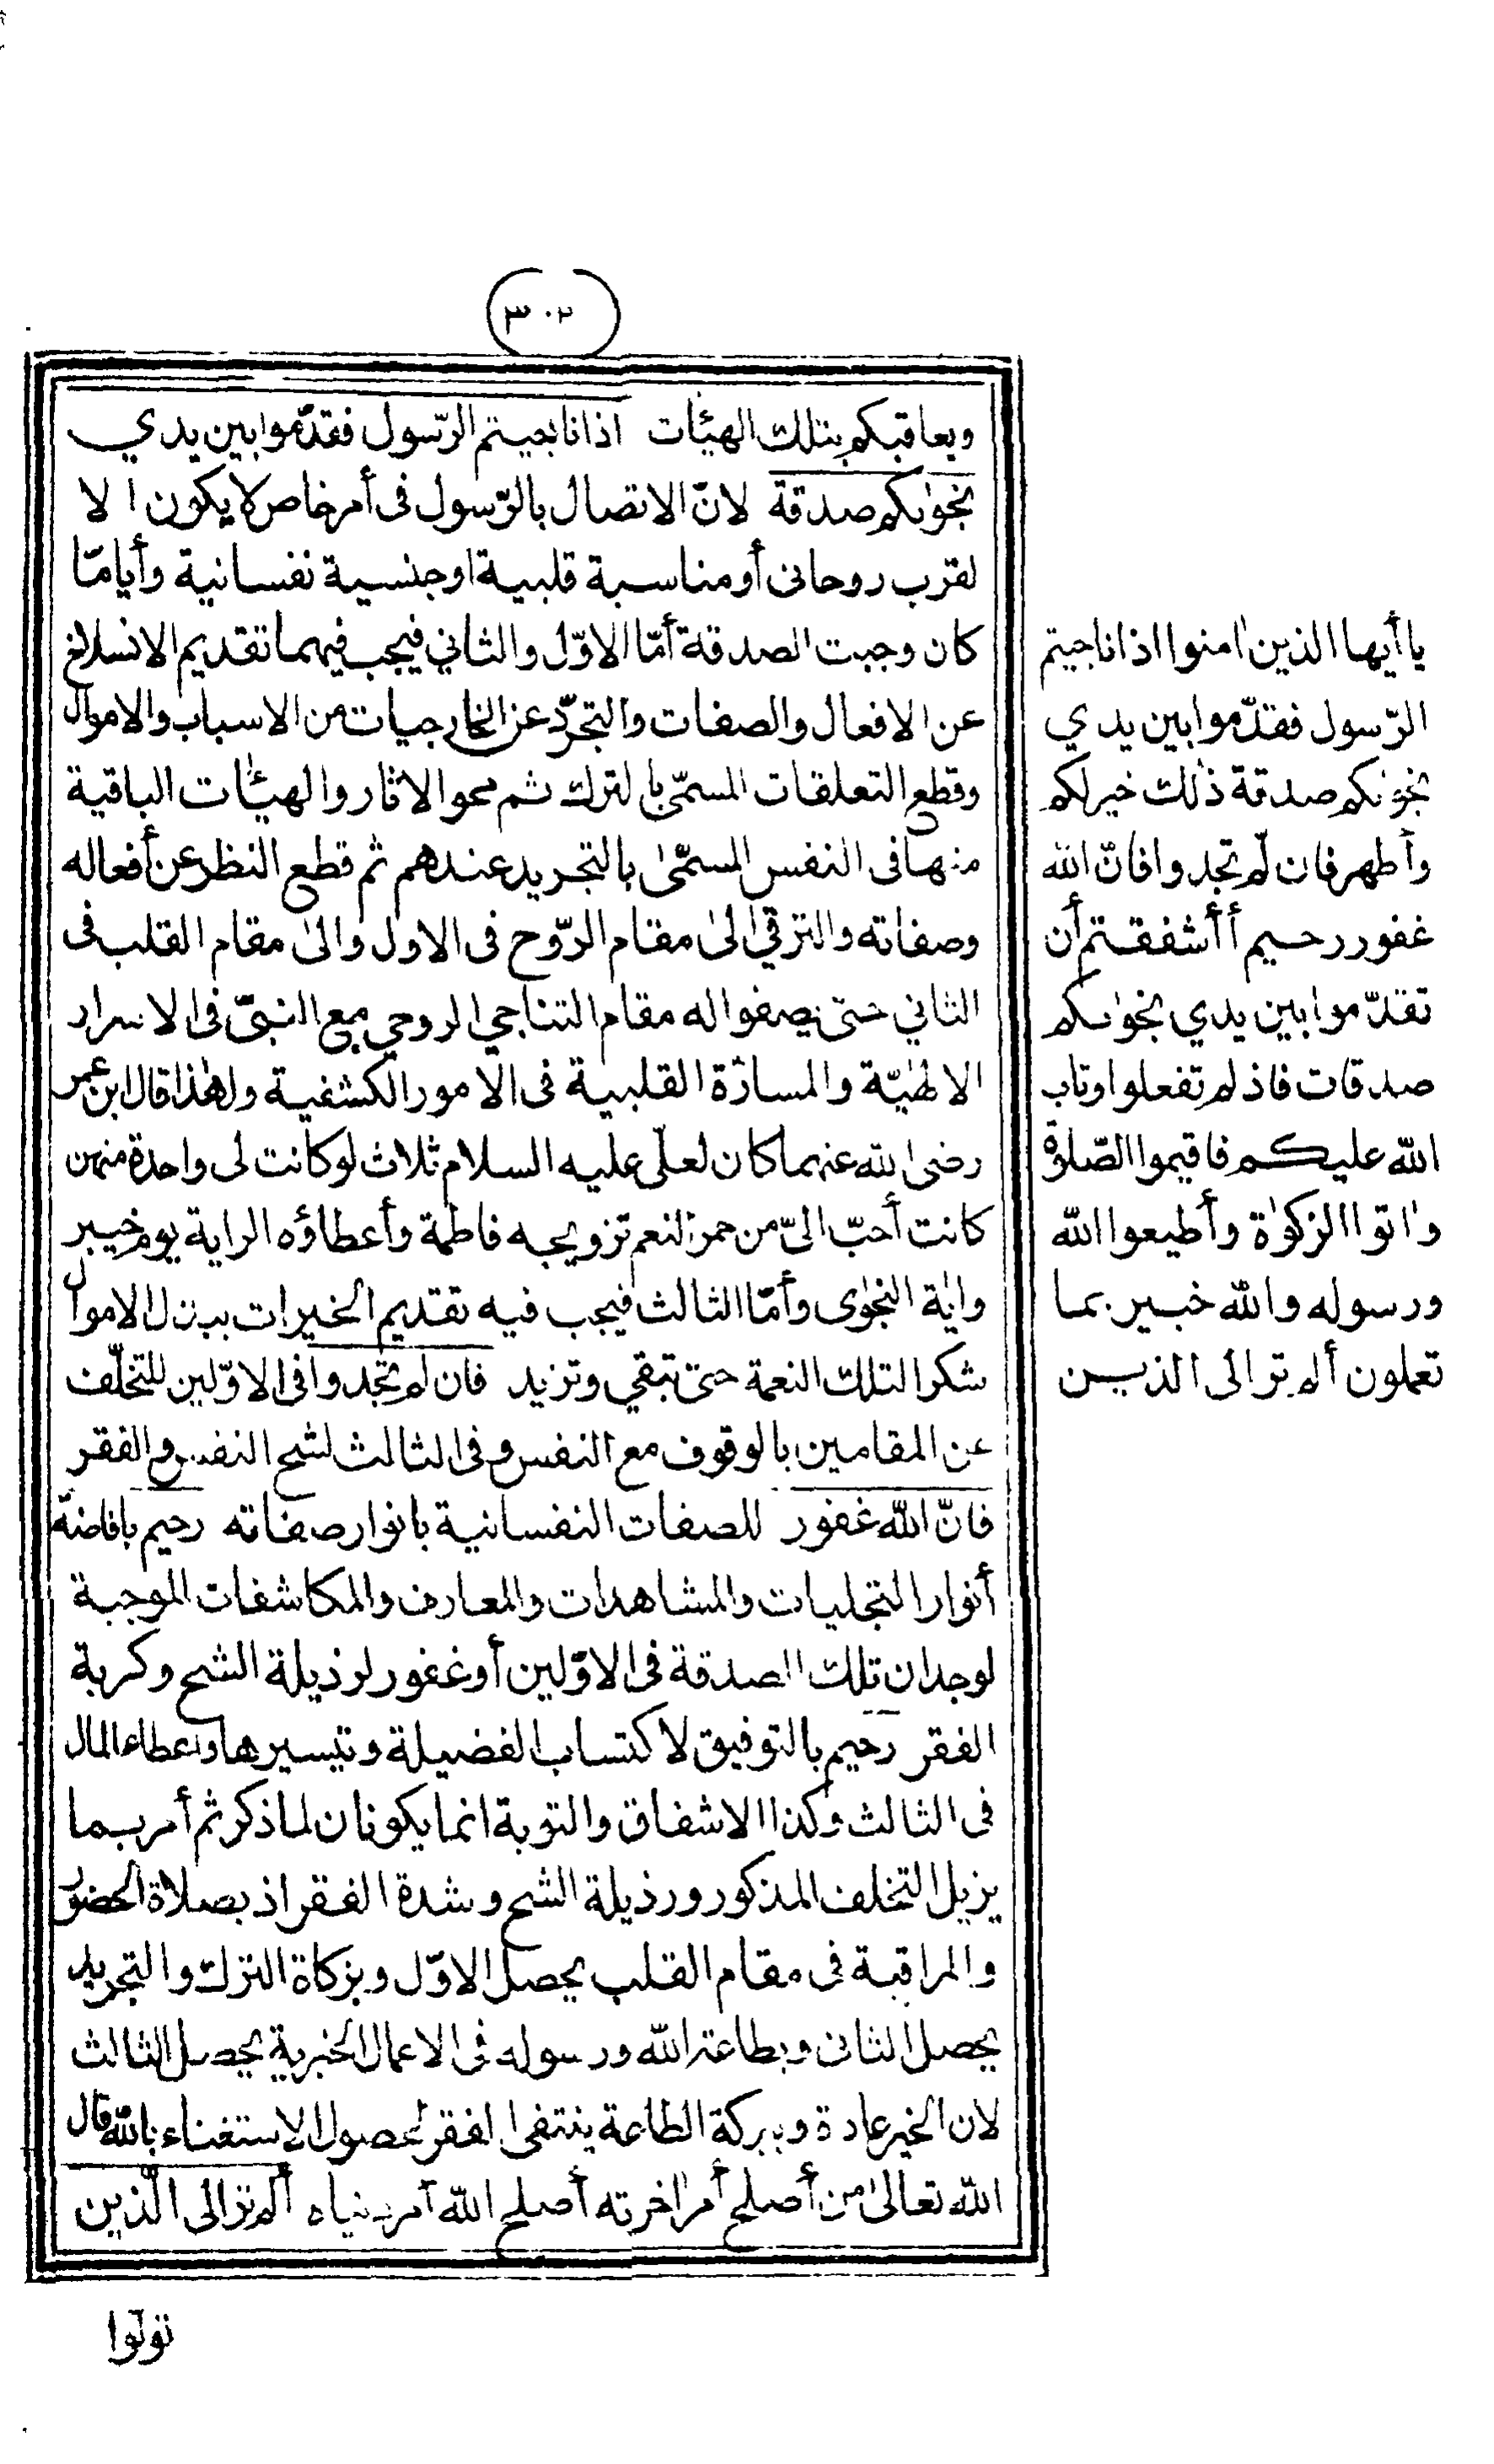 ٣٠٢
ويعاقبكم بتلك الهيئات اذا ناجيتم الرّسول فقدّموا بين يدي
نجوٰىكم صدقة لانّ الاتصال بالرّسول فى أمر خاص لا يكون الا
لقرب روحانى أو مناسبة قلبية او جنسية نفسانية وأيامّا
كان وجبت الصدقة أمّا الاوّل والثاني فيجب فيهما تقديم الانسلاخ
عن الافعال والصفات والتجرّد عن الخارجيات من الاسباب والاموال
وقطع التعلقات المسمّى بالترك ثم محو الاثار والهيئات الباقية
منها فى النفس المسمّىٰ بالتجريد عندهم ثم قطع النظر عن أفعاله
وصفاته والترقي الىٰ مقام الرّوح فى الاول والىٰ مقام القلب فى
الثاني حتىٰ يصفوا له مقام التناجي الروحي مع النبيّ فى الاسرار
الالٰهيّة والمسارّة القلبية فى الامور الكشفية ولهٰذا قال ابن عمر
رضى الله عنهما كان لعلّى عليه السلام ثلاث لو كانت لى واحدة منهن
كانت أحبّ الىّ من حمر النعم تزويجه فاطمة وأعطاؤه الراية يوم خيبر
واٰية النجوٰى وأمّا الثالث فيجب فيه تقديم الخيرات ببذل الاموال
شكرا لتلك النعمة حتىٰ تبقي وتزيد فان لم تجدوا فى الاوّلين للتخلّف
عن المقامين بالوقوف مع النفس وفى الثالث لشح النفس والفقر
فانّ الله غفور للصفات النفسانية بانوار صفاته رحيم بافاضة
أنوار التجليات والمشاهدات والمعارف والمكاشفات الموجبة
لوجدان تلك الصدقة فى الاوّلين أو غفور لرذيلة الشح وكربة
الفقر رحيم بالتوفيق لاكتساب الفضيلة وتيسيرها واعطاء المال
فى الثالث وكذا الاشفاق والتوبة انما يكونان لما ذكر ثم أمر بما
يزيل التخلف المذكور ورذيلة الشح وشدة الفقر اذ بصلاة الحضور
والمراقبة فى مقام القلب يحصل الاوّل وبزكاة الترك والتجريد
يحصل الثانى وبطاعة الله ورسوله فى الاعمال الخيرية يحصل الثالث
لان الخير عادة وببركة الطاعة ينتفى الفقر لحصول الاستغناء بالله قال
الله تعالىٰ من أصلح أمر اٰخرته أصلح الله أمر دنياه ألم تر الى الّذين
يا أيها الذين اٰمنوا اذا ناجيتم
الرّسول فقدّموا بين يدي
نجوٰىكم صدقة ذٰلك خير لكم
وأطهر فان لّم تجدوا فانّ الله
غفور رحيم أأشفقتم أن
تقدّموا بين يدي نجوٰىكم
صدقات فاذ لم تفعلوا وتاب
الله عليكم فاقيموا الصّلوٰة
واٰتوا الزكوٰة وأطيعوا الله
ورسوله والله خبير بما
تعملون ألم تر الى الذين
تولّوا